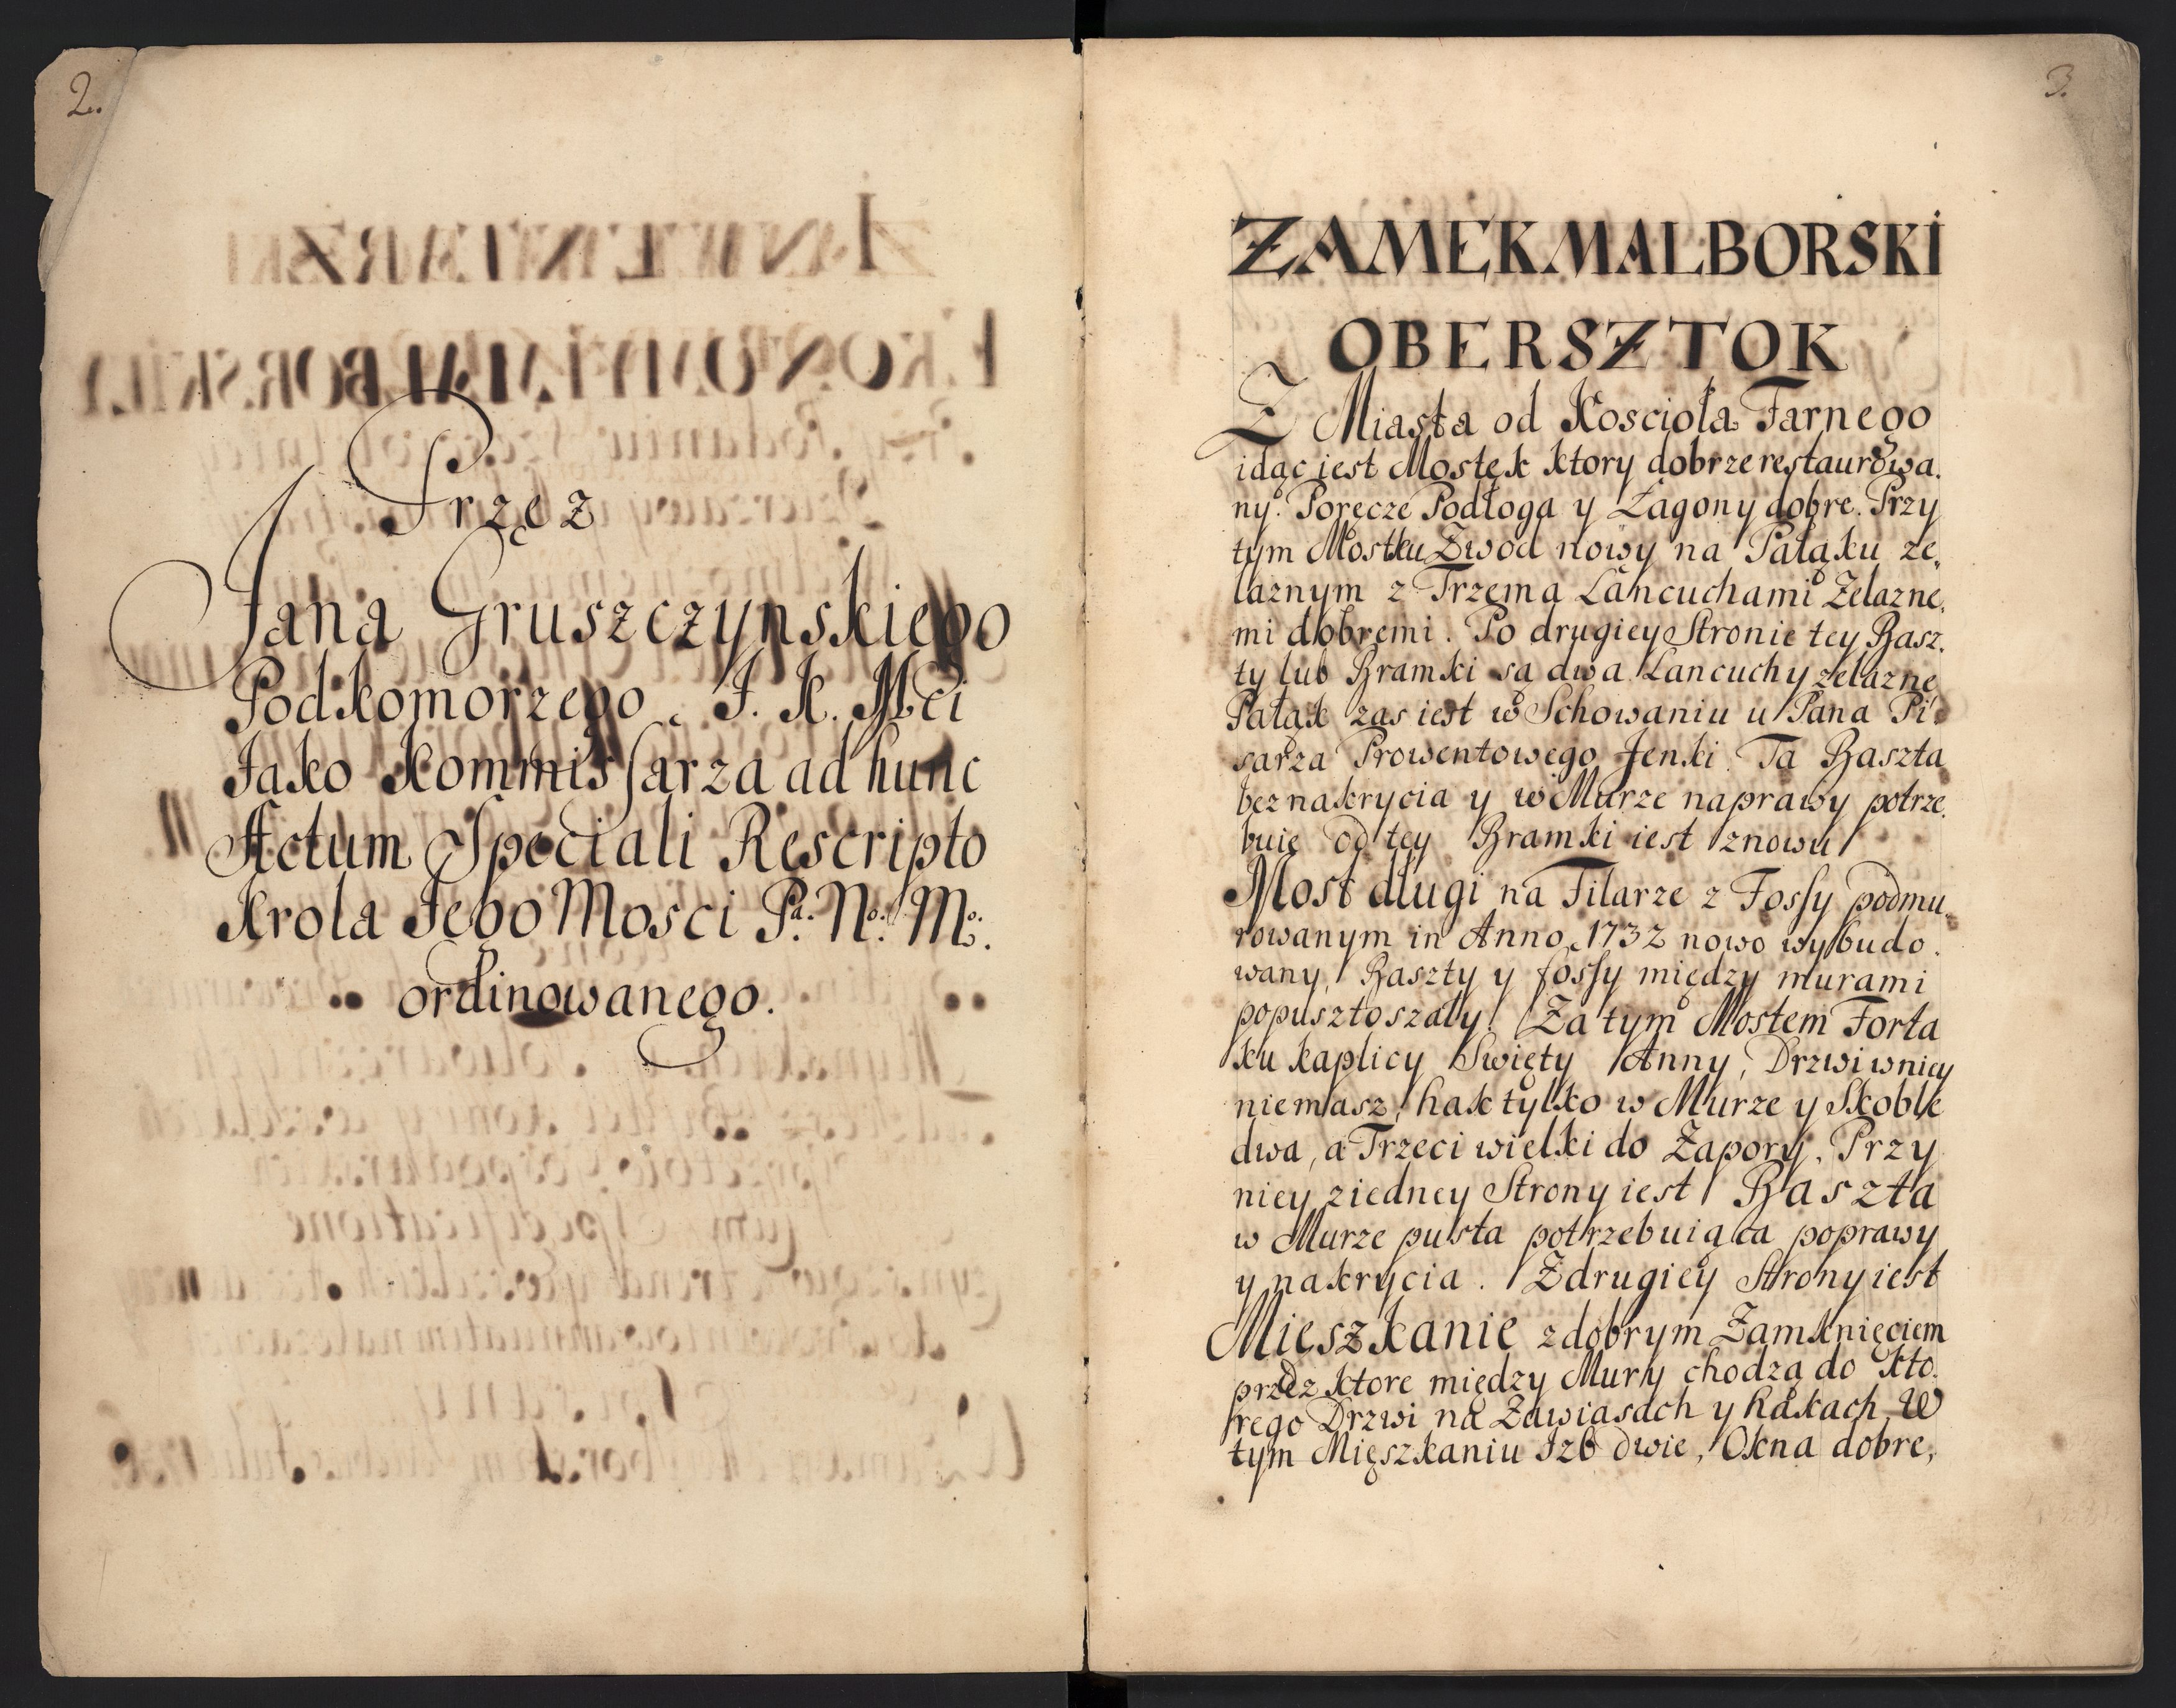 2.
Przez
Jana Gruszczynskiego
Podkomorzego J. K. Mci
Jako Kommissarza ad hunc
Actum Speciali Rescripto
Krola Jego Mosci Pa. No. Mo.
ordinowanego.
3.
ZAMEK MALBORSKI
OBERSZTOK
Z Miasta od Kosciola Farnego
idąc iest Mostek ktory dobrze restaurowa.
ny. Poręcze Podłoga y Zagony dobre. Przy
tym Mostku Zwod nowy na Pałąku że,
laznym z Trzema Łancuchami Żelazne,
mi dobremi. Po drugiey Stronie tey Basz.
ty lub Bramki są dwa Łancuchy żelazne
Pałąk zas iest w Schowaniu u Pana Pi.
sarza Prowentowego Jenki. Ta Baszta
bez nakrycia y w Murze naprawy potrze.
buie od tey Bramki iest znowu
Most długi na Filarze z Fossy podmu.
rowanym in Anno 1732 nowo wybudo.
wany, Baszty y fossy między murami
popusztoszały. Za tym Mostem Forta
ku kaplicy Swięty Anny, Drzwi w niey
niemasz, hak tylko w Murze y Skoble
dwa, a Trzeci wielki do Zapory. Przy
niey ziedney Strony iest Baszta
w Murze pusta potrzebuiąca poprawy
y nakrycia. Zdrugiey Strony iest
Mieszkanie z dobrym Zamknięciem
przez ktore między Mury chodzą do kto.
rego Drzwi na Zawiasach y hakach W
tym Mięszkaniu Izb dwie, Okna dobre,